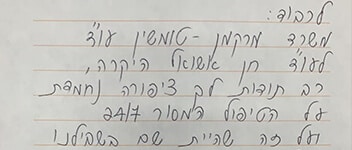 לכבוד:
משרד מרקמן - טומשין עו"ד
לעו"ד חן אשואל היקרה,
רב תודות לב ציפורה נחמדת
על הטיפול המסור 24/7
ועל זה שהיית שם בשבילנו